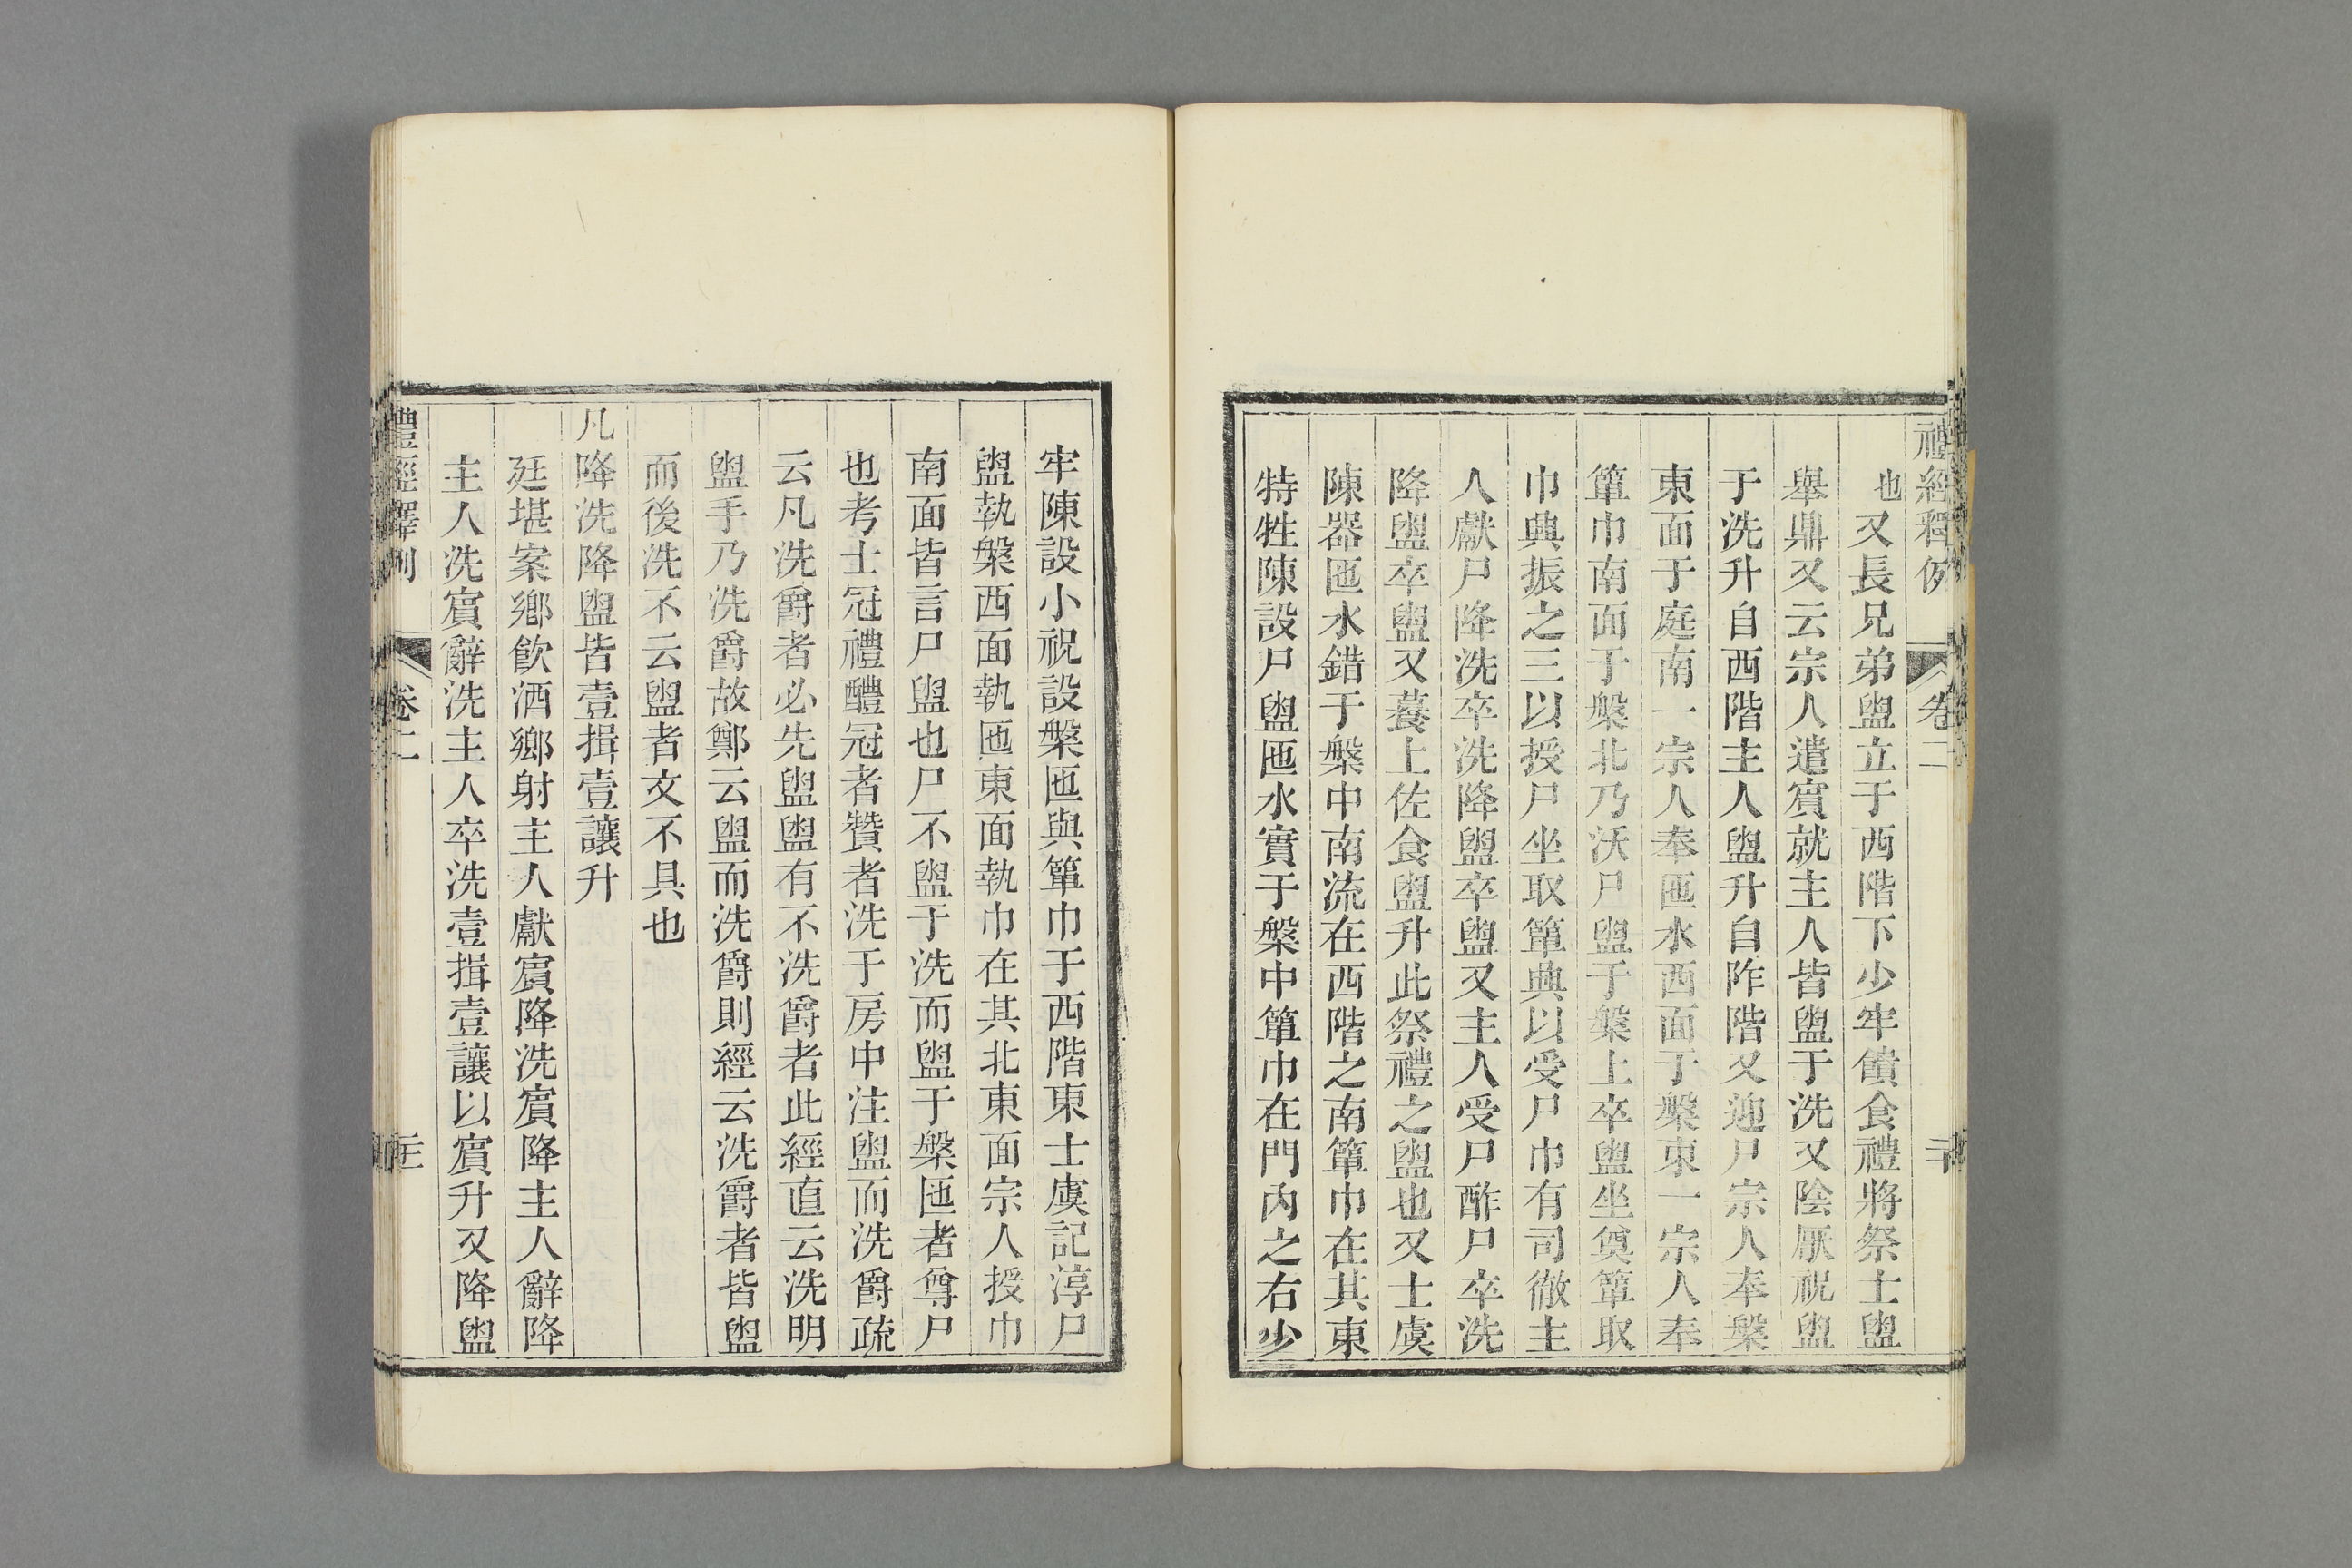 禮經釋例 卷二 二十
也又長兄弟盥立于西階下少牢饋食禮將祭士盥
舉鼎又云宗人遣賓就主人皆盥于洗又陰厭祝盥
于洗升自西階主人盥升自阼階又迎尸宗人奉槃
東面于庭南一宗人奉匜水西面于槃東一宗人奉
簞巾南面于槃北乃沃尸盥于槃上卒盥坐奠簞取
巾興振之三以授尸坐取簞興以受尸巾有司徹主
人獻尸降洗卒洗降盥卒盥又主人受尸酢尸卒洗
降盥卒盥又䬸上佐食盥升此祭禮之盥也又士虞
陳器匜水錯于槃中南流在西階之南簞巾在其東
特牲陳設尸盥匜水實于槃中簞巾在門內之右少
牢陳設小祝設槃匜與簞巾于西階東士虞記淳尸
盥執槃西面執匜東面執巾在其北東面宗人授巾
南面皆言尸盥也尸不盥于洗而盥于槃匜者尊尸
也考士冠禮醴冠者贊者洗于房中注盥而洗爵疏
云凡洗爵者必先盥盥有不洗爵者此經直云洗明
盥手乃洗爵故鄭云盥而洗爵則經云洗爵者皆盥
而後洗不云盥者文不具也
凡降洗降盥皆壹揖壹讓升
廷堪案鄉飲酒鄉射主人獻賓降洗賓降主人辭降
主人洗賓辭洗主人卒洗壹揖壹讓以賓升又降盥
禮經釋例 卷二